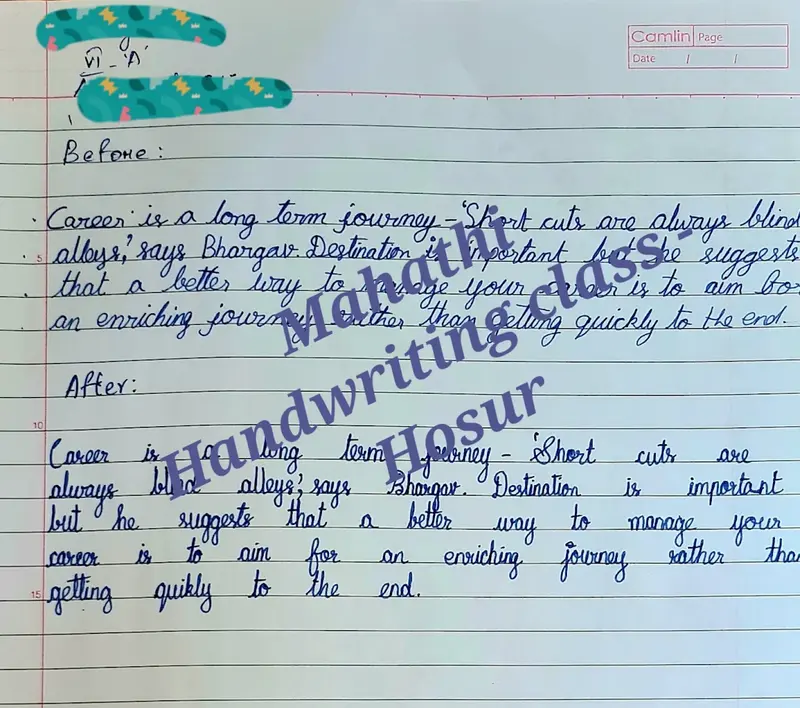 VI - 'A'
Camlin Page
Date / /
Before:
Career is a long term journey - 'Short cuts are always blind
5 alleys,' says Bhargav. Destination is important but he suggests
that a better way to manage your career is to aim for
an enriching journey rather than getting quickly to the end.
After:
10
Career is a long term journey - 'Short cuts are
always blind alleys,' says Bhargav. Destination is important
but he suggests that a better way to manage your
career is to aim for an enriching journey rather than
15 getting quikly to the end.
Mahathi
Handwriting class -
Hosur